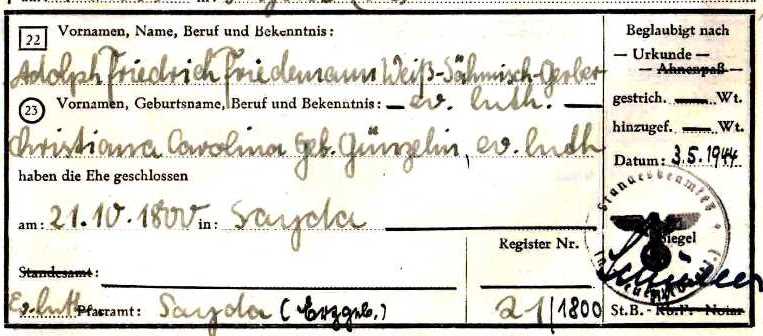 22 Vornamen, Name, Beruf und Bekenntnis:
Adolph Friedrich Friedemann Weiß-Sähmisch-Gerber
ev. luth.
23 Vornamen, Geburtsname, Beruf und Bekenntnis:
Christiana Carolina geb. Günzelin, ev. luth
haben die Ehe geschlossen
am: 21.10.1800 in: Sayda
Standesamt:
Ev.luth. Pfarramt: Sayda (Erzgeb.)
Register Nr.
21/1800
Beglaubigt nach
— Urkunde —
— Ahnenpaß —
gestrich. — Wt.
hinzugef. — Wt.
Datum: 3.5.1944
Standesbeamter
Siegel
St.B. - Kb.F. - Notar